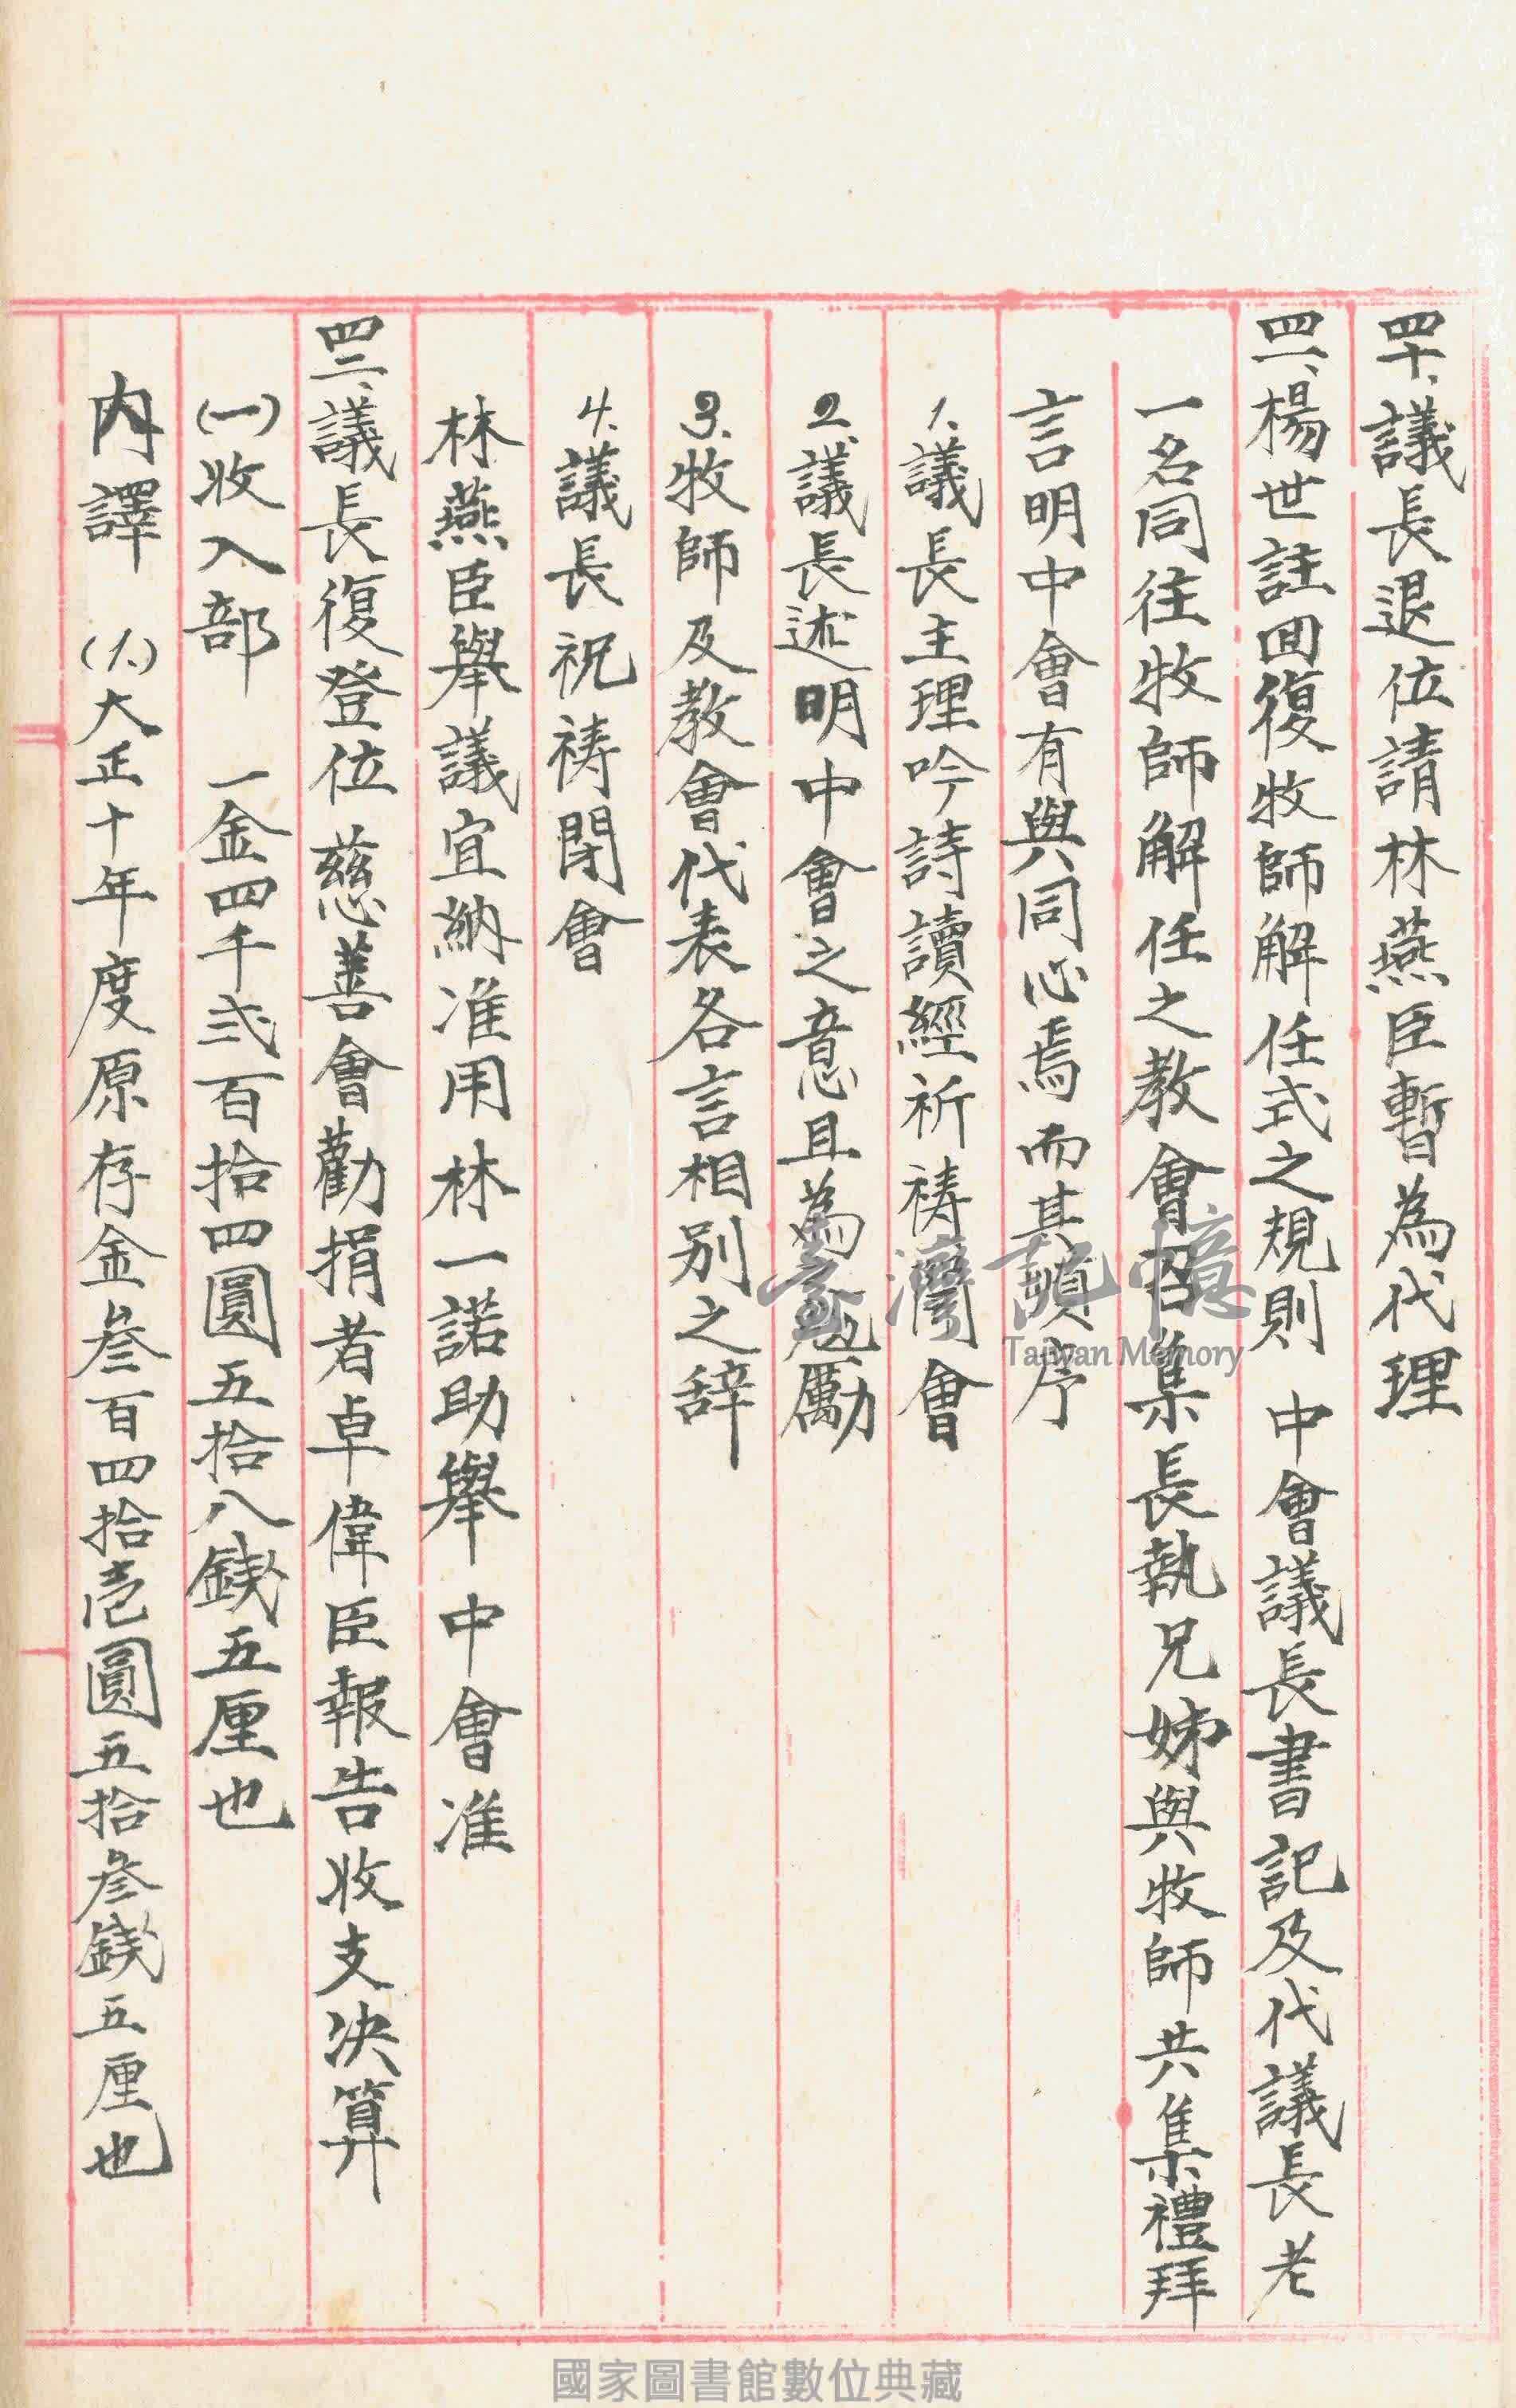 四十、議長退位請林燕臣暫為代理
四一、楊世註回復牧師解任式之規則 中會議長書記及代議長老
一名同往牧師解任之教會召集長執兄姊與牧師共集禮拜
言明中會有與同心焉而其順序
1.議長主理吟詩讀經祈禱開會
2.議長述明中會之意且為勉勵
3.牧師及教會代表各言相別之辞
4.議長祝禱閉會
林燕臣舉議宜納准用林一諾助舉中會准
四二、議長復登位 慈善會勸捐者卓偉臣報告收支決算
(一)收入部 一金四千弎百拾四圓五拾八銭五厘也
內譯 (1.)大正十年度原存金叁百四拾壱圓五拾叁銭五厘也
臺灣記憶
Taiwan Memory
國家圖書館數位典藏